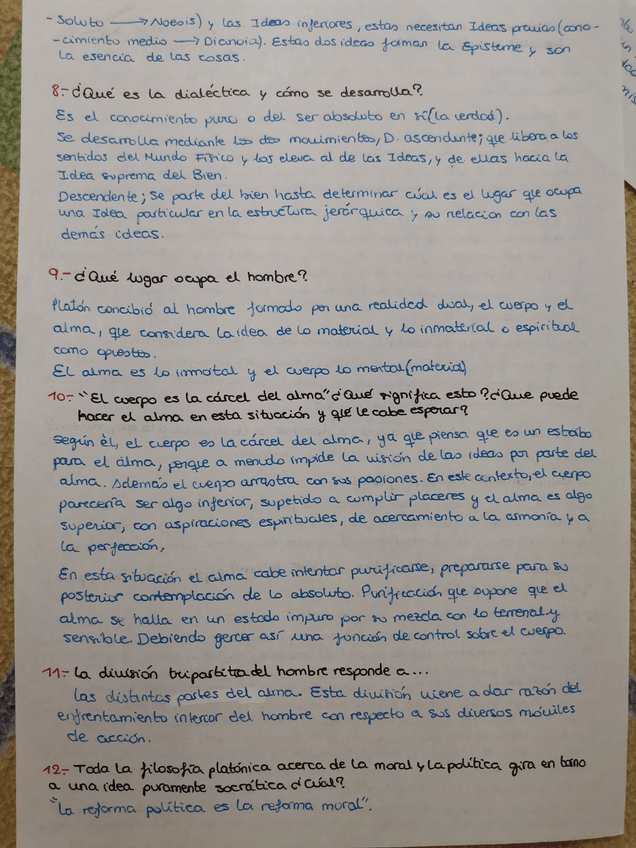 -soluto → Noesis) y las Ideas inferiores, estas necesitan Ideas previas (cono-
-cimiento medio → Dianoia). Estas dos ideas forman la Episteme y son
la esencia de las cosas.
8.- ¿Qué es la dialéctica y cómo se desarrolla?
Es el conocimiento puro o del ser absoluto en sí (la verdad).
Se desarrolla mediante los dos movimientos, D. ascendente; que libera a los
sentidos del Mundo Físico y los eleva al de las Ideas, y de ellas hacia la
Idea suprema del Bien.
Descendente; Se parte del bien hasta determinar cúal es el lugar que ocupa
una Idea particular en la estructura jerárquica y su relacion con las
demás ideas.
9.- ¿Qué lugar ocupa el hombre?
Platón concibió al hombre formado por una realidad dual, el cuerpo y el
alma, que considera la idea de lo material y lo inmaterial o espiritual
como opuestos.
El alma es lo inmortal y el cuerpo lo mortal (material)
10.- "El cuerpo es la cárcel del alma" ¿Qué significa esto? ¿Que puede
hacer el alma en esta situación y qué le cabe esperar?
Según él, el cuerpo es la cárcel del alma, ya que piensa que es un estorbo
para el alma, porque a menudo impide la visión de las ideas por parte del
alma. Además el cuerpo arrastra con sus pasiones. En este contexto, el cuerpo
parecería ser algo inferior, supetido a cumplir placeres y el alma es algo
superior, con aspiraciones espirituales, de acercamiento a la armonía y a
la perfección,
En esta situación el alma cabe intentar purificarse, prepararse para su
posterior contemplación de lo absoluto. Purificación que supone que el
alma se halla en un estado impuro por su mezcla con lo terrenal y
sensible. Debiendo ejercer así una función de control sobre el cuerpo.
11.- La división tripartita del hombre responde a...
Las distintas partes del alma. Esta división viene a dar razón del
enfrentamiento interior del hombre con respecto a sus diversos móviles
de acción.
12.- Toda la filosofía platónica acerca de la moral y la política gira en torno
a una idea puramente socrática ¿Cuál?
"La reforma política es la reforma moral".